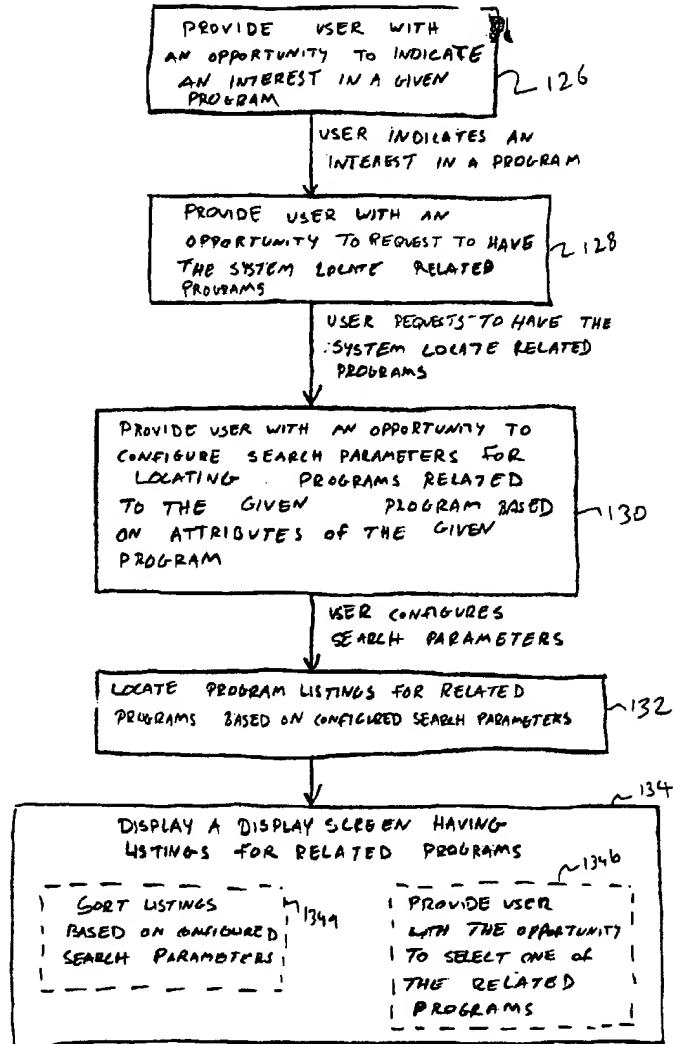 PROVIDE USER WITH
AN OPPORTUNITY TO INDICATE
AN INTEREST IN A GIVEN
PROGRAM
126
USER INDICATES AN
INTEREST IN A PROGRAM
PROVIDE USER WITH AN
OPPORTUNITY TO REQUEST TO HAVE
THE SYSTEM LOCATE RELATED
PROGRAMS
128
USER REQUESTS TO HAVE THE
SYSTEM LOCATE RELATED
PROGRAMS
PROVIDE USER WITH AN OPPORTUNITY TO
CONFIGURE SEARCH PARAMETERS FOR
LOCATING PROGRAMS RELATED
TO THE GIVEN PROGRAM BASED
ON ATTRIBUTES OF THE GIVEN
PROGRAM
130
USER CONFIGURES
SEARCH PARAMETERS
LOCATE PROGRAM LISTINGS FOR RELATED
PROGRAMS BASED ON CONFIGURED SEARCH PARAMETERS
132
134
DISPLAY A DISPLAY SCREEN HAVING
LISTINGS FOR RELATED PROGRAMS
SORT LISTINGS
BASED ON CONFIGURED
SEARCH PARAMETERS
134a
134b
PROVIDE USER
WITH THE OPPORTUNITY
TO SELECT ONE OF
THE RELATED
PROGRAMS